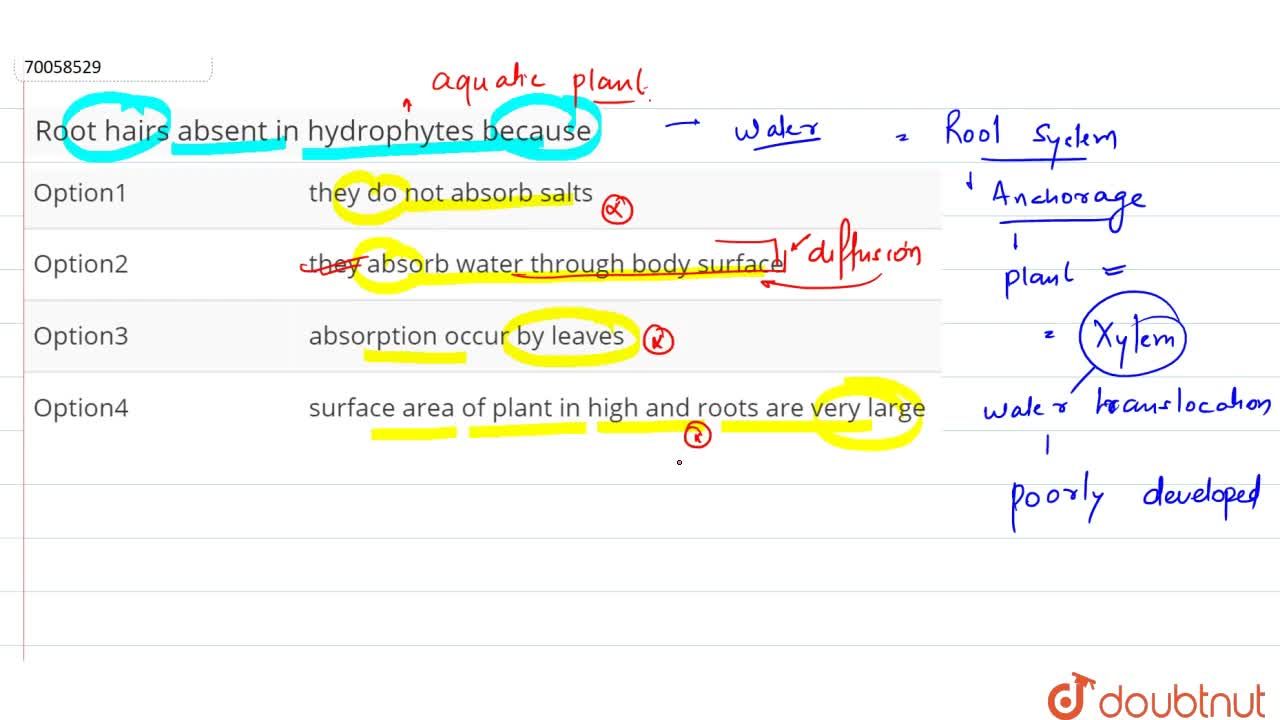 70058529
aquatic plant.
Root hairs absent in hydrophytes because
→ water = Root System
Option1 they do not absorb salts
Anchorage
Option2 they absorb water through body surface
diffusion
plant =
Option3 absorption occur by leaves
= Xylem
Option4 surface area of plant in high and roots are very large
water translocation
poorly developed
doubtnut